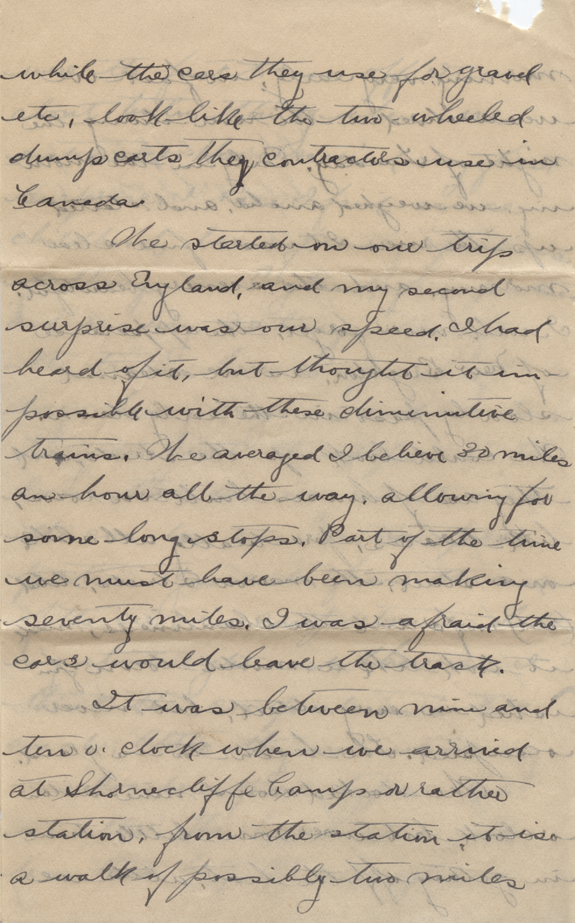 while the cars they use for gravel
etc, look like the two wheeled
dump carts they contractors use in
Canada
We started on our trip
across England, and my second
surprise was our speed. I had
heard of it, but thought it im
possible with these diminitive
trains. We averaged I believe 30 miles
an hour all the way, allowing for
some long stops. Part of the time
we must have been making
seventy miles. I was afraid the
cars would leave the trask.
It was between nine and
ten o. clock when we arrived
at Shorncliffe Camp or rather
station, from the station it is
a walk of possibly two miles